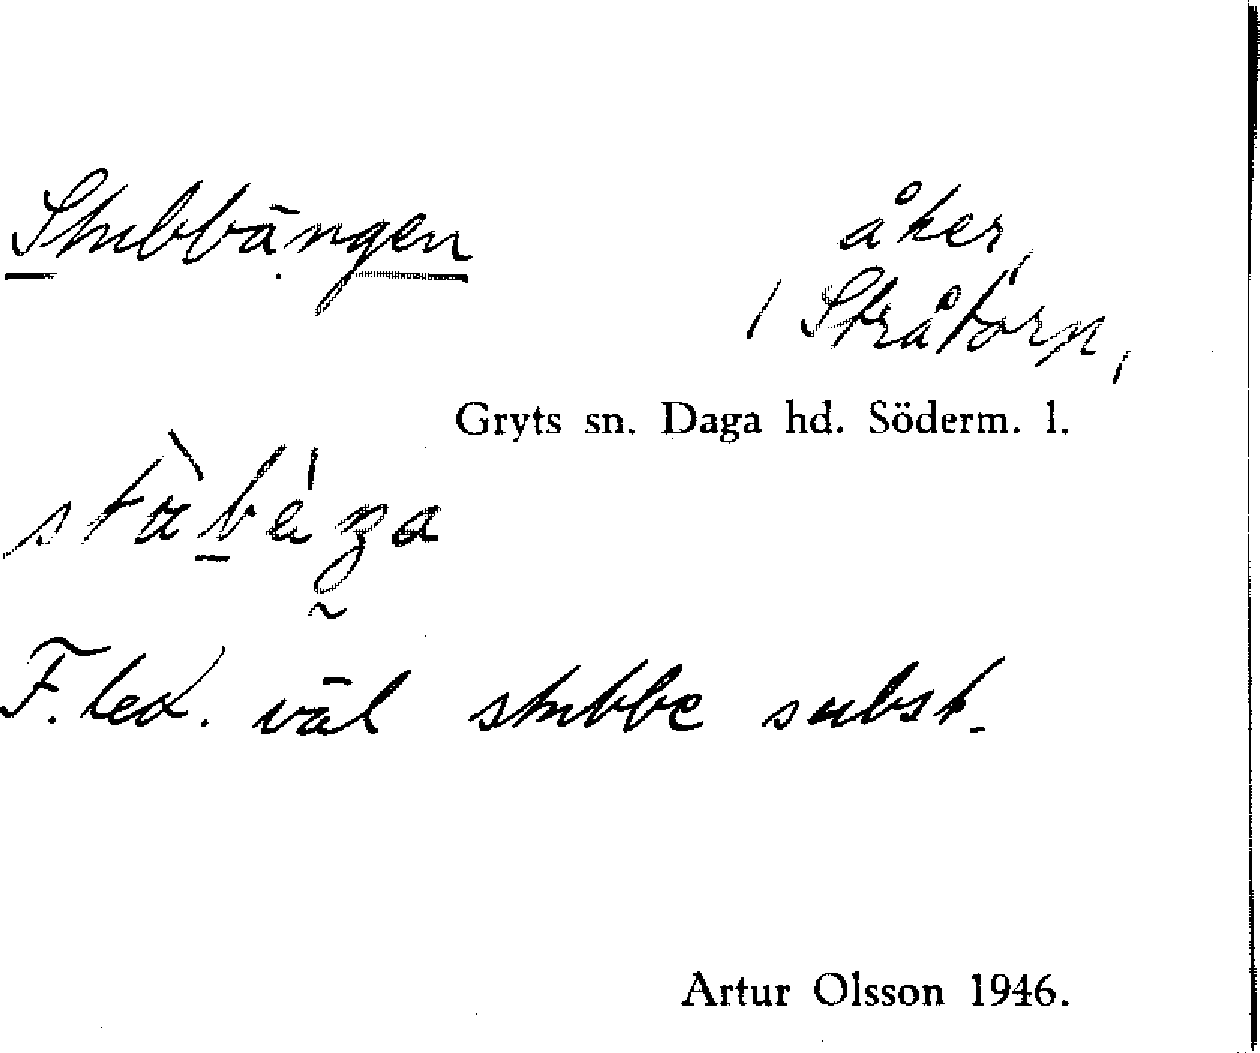 Stubbängen
åker,
/ Stråtorp,
Gryts sn. Daga hd. Söderm. l.
F. led. väl stubbe subst.
Artur Olsson 1946.